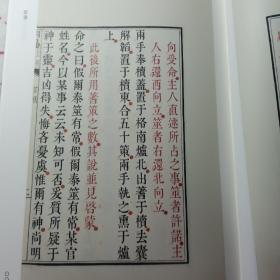 向受命主人直述所占之事筮者許諾主
人右還西向立筮者右還北向立
兩手奉櫝蓋置于格南爐北出蓍于櫝去囊
解韜置于櫝東合五十策兩手執之熏于爐
上
此後所用蓍策之數其說並見啓蒙
命之曰假爾泰筮有常假爾泰筮有常某官
姓名今以某事云云未知可否爰質所疑于
神于靈吉凶得失悔吝憂虞惟爾有神尚明